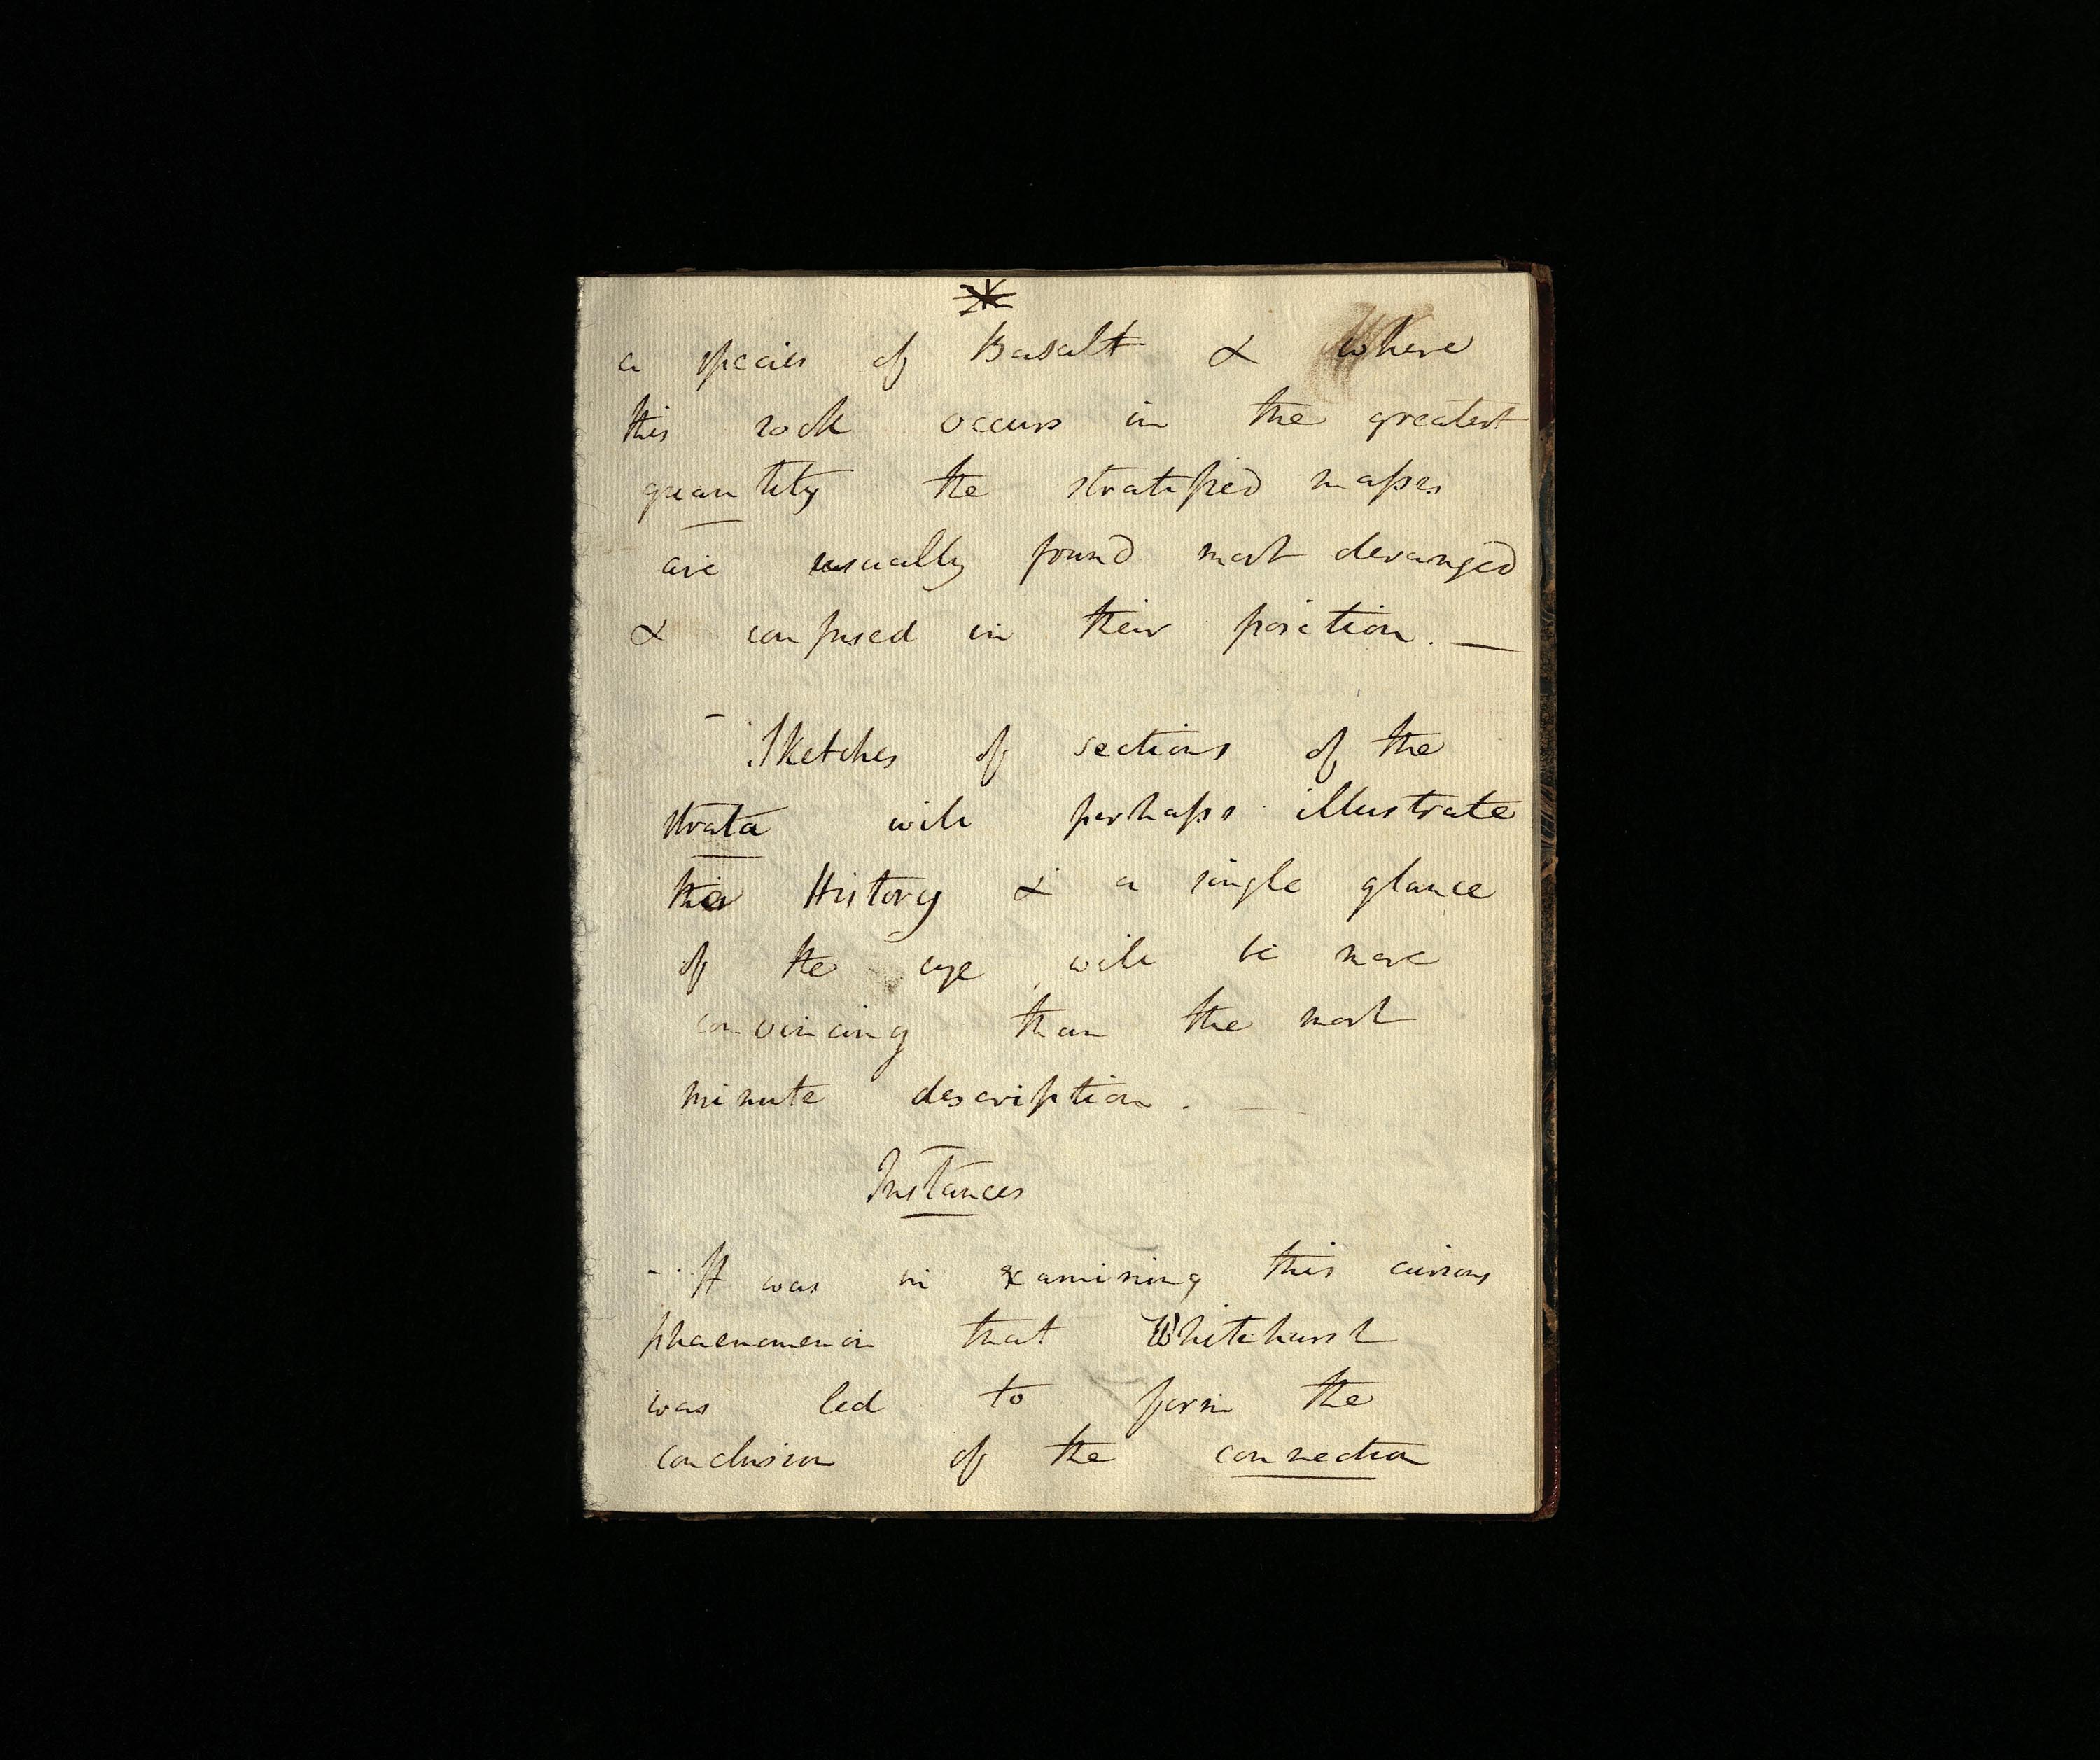 a species of Basalt & where
this rock occurs in the greatest
quantity the stratified masses
are usually found most deranged
& confused in their position. —
- Sketches of sections of the
strata will perhaps illustrate
this History & a single glance
of the eye will be more
convincing than the most
minute description. —
Instances
- It was in examining this curious
phaenomenon that Whitehurst
was led to form the
conclusion of the connection